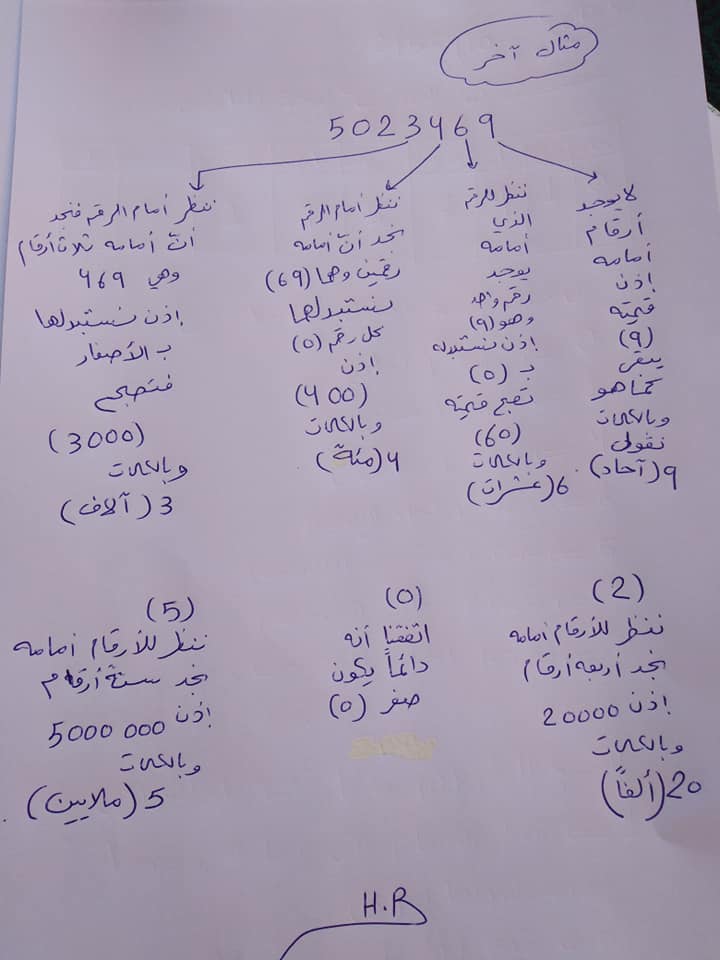 مثال آخر
5023469
لا يوجد
أرقام
أمامه
إذن
قيمته
(9)
يبقى
كما هو
وبالكلمات
نقول
9 (آحاد)
ننظر للرقم
الذي
أمامه
يوجد
رقم واحد
وهو (9)
إذن نستبدله
بـ (0)
تصبح قيمته
(60)
وبالكلمات
6 (عشرات)
ننظر أمام الرقم
نجد أنّ أمامه
رقمين وهما (69)
نستبدلها
بكل رقم (0)
إذن
(400)
وبالكلمات
4 (مئة)
ننظر أمام الرقم فنجد
أنّ أمامه ثلاث أرقام
وهي 469
إذن نستبدلها
بـ الأصفار
فتصبح
(3000)
وبالكلمات
3 (آلاف)
(2)
ننظر للأرقام أمامه
نجد أربعة أرقام
إذن 20000
وبالكلمات
20 (ألفاً)
(0)
اتفقنا أنه
دائماً يكون
صفر (0)
(5)
ننظر للأرقام أمامه
نجد ستة أرقام
إذن 5000 000
وبالكلمات
5 (ملايين)
H.R